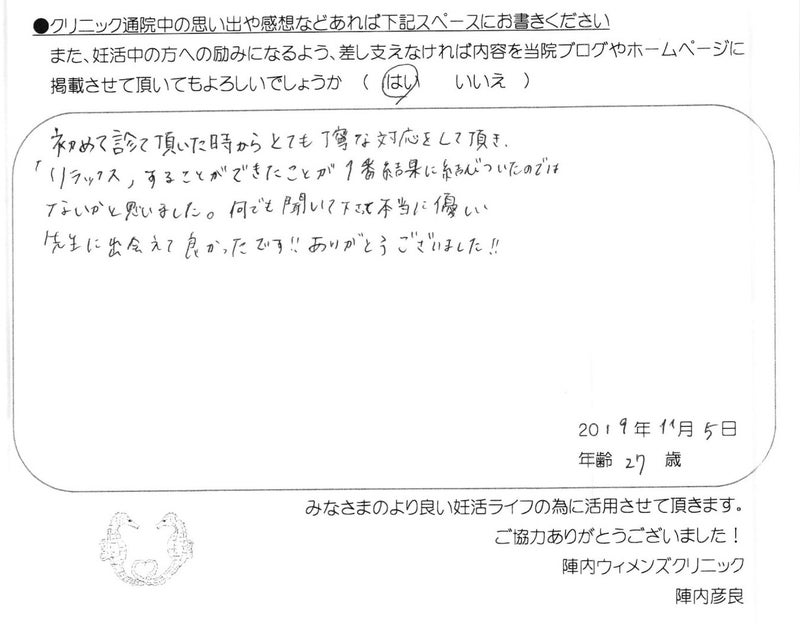 ●クリニック通院中の思い出や感想などあれば下記スペースにお書きください
また、妊活中の方への励みになるよう、差し支えなければ内容を当院ブログやホームページに
掲載させて頂いてもよろしいでしょうか （ はい いいえ ）
初めて診て頂いた時からとても丁寧な対応をして頂き、
「リラックス」することができたことが1番結果に結びついたのでは
ないかと思いました。何でも聞いて下さって本当に優しい
先生に出会えて良かったです!! ありがとうございました!!
2019年11月5日
年齢 27 歳
みなさまのより良い妊活ライフの為に活用させて頂きます。
ご協力ありがとうございました！
陣内ウィメンズクリニック
陣内彦良